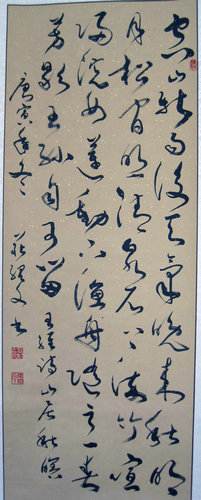 空山新雨後天氣晚來秋明
月松間照清泉石上流竹喧
歸浣女蓮動下漁舟隨意春
芳歇王孫自可留 王維詩山居秋暝
庚寅年冬 書